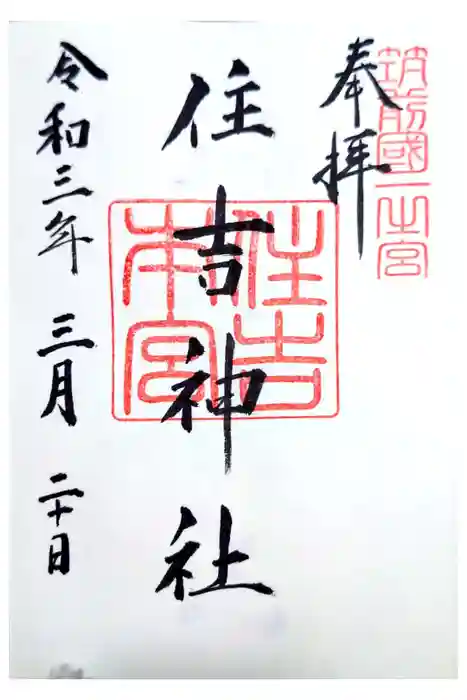 筑前國一之宮
奉拝
住吉神社
住吉本宮
令和三年 三月 二十日